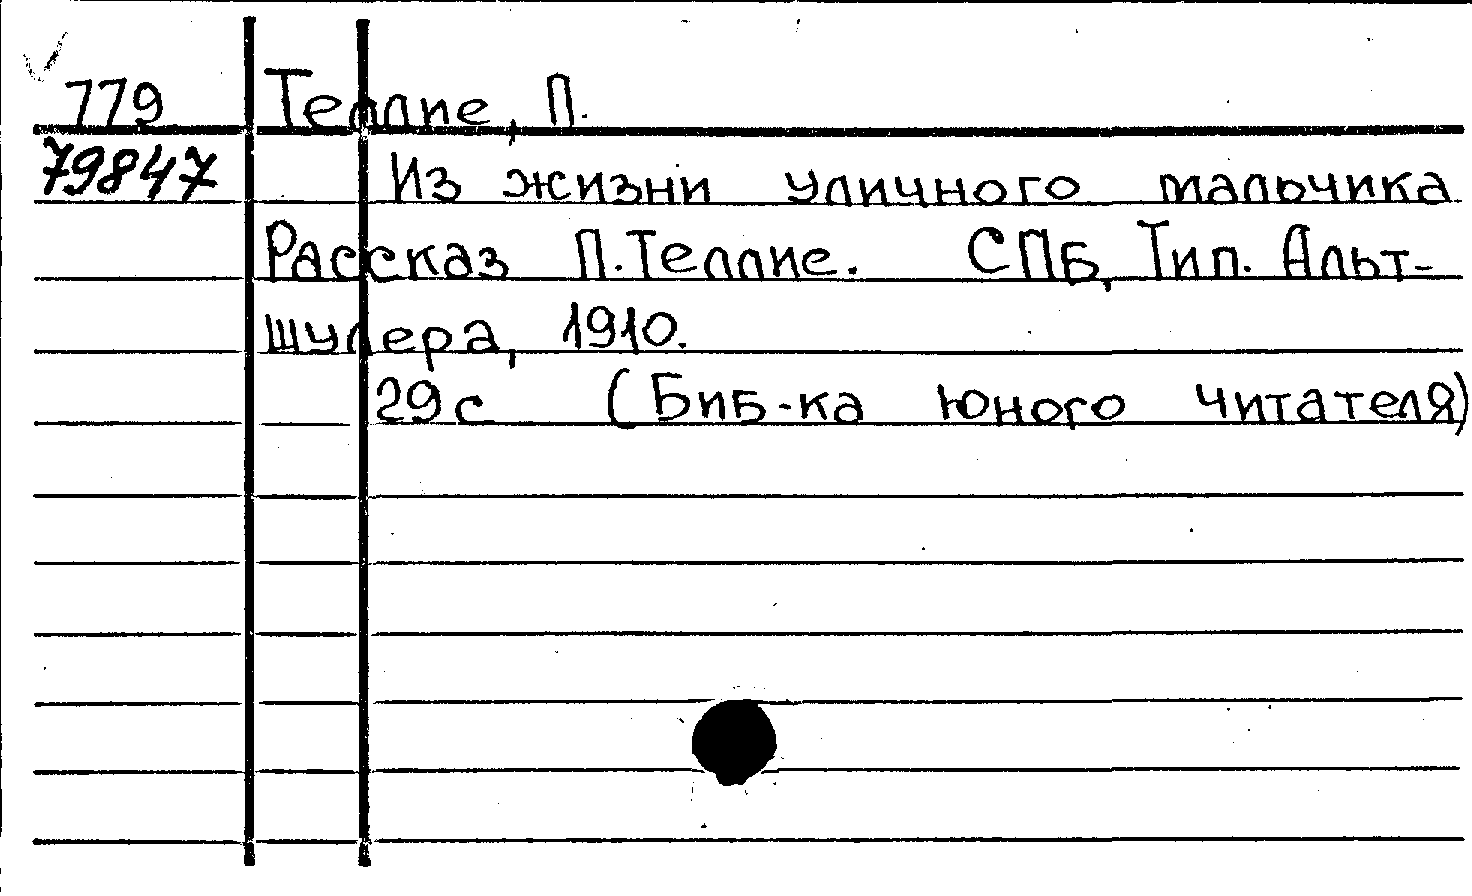 779 Теллие, П.
79847 Из жизни уличного мальчика
Рассказ П. Теллие. СПБ, Тип. Альт-
шулера, 1910.
29 с (Биб-ка юного читателя)